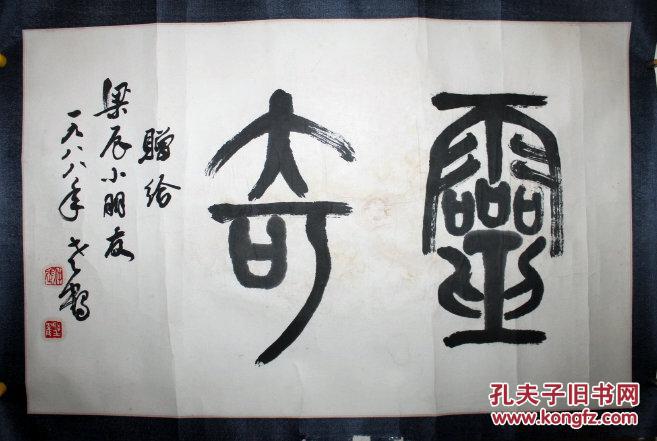 靈奇
贈给
梁辰小朋友
一九八八年
孔夫子旧书网
www.kongfz.com